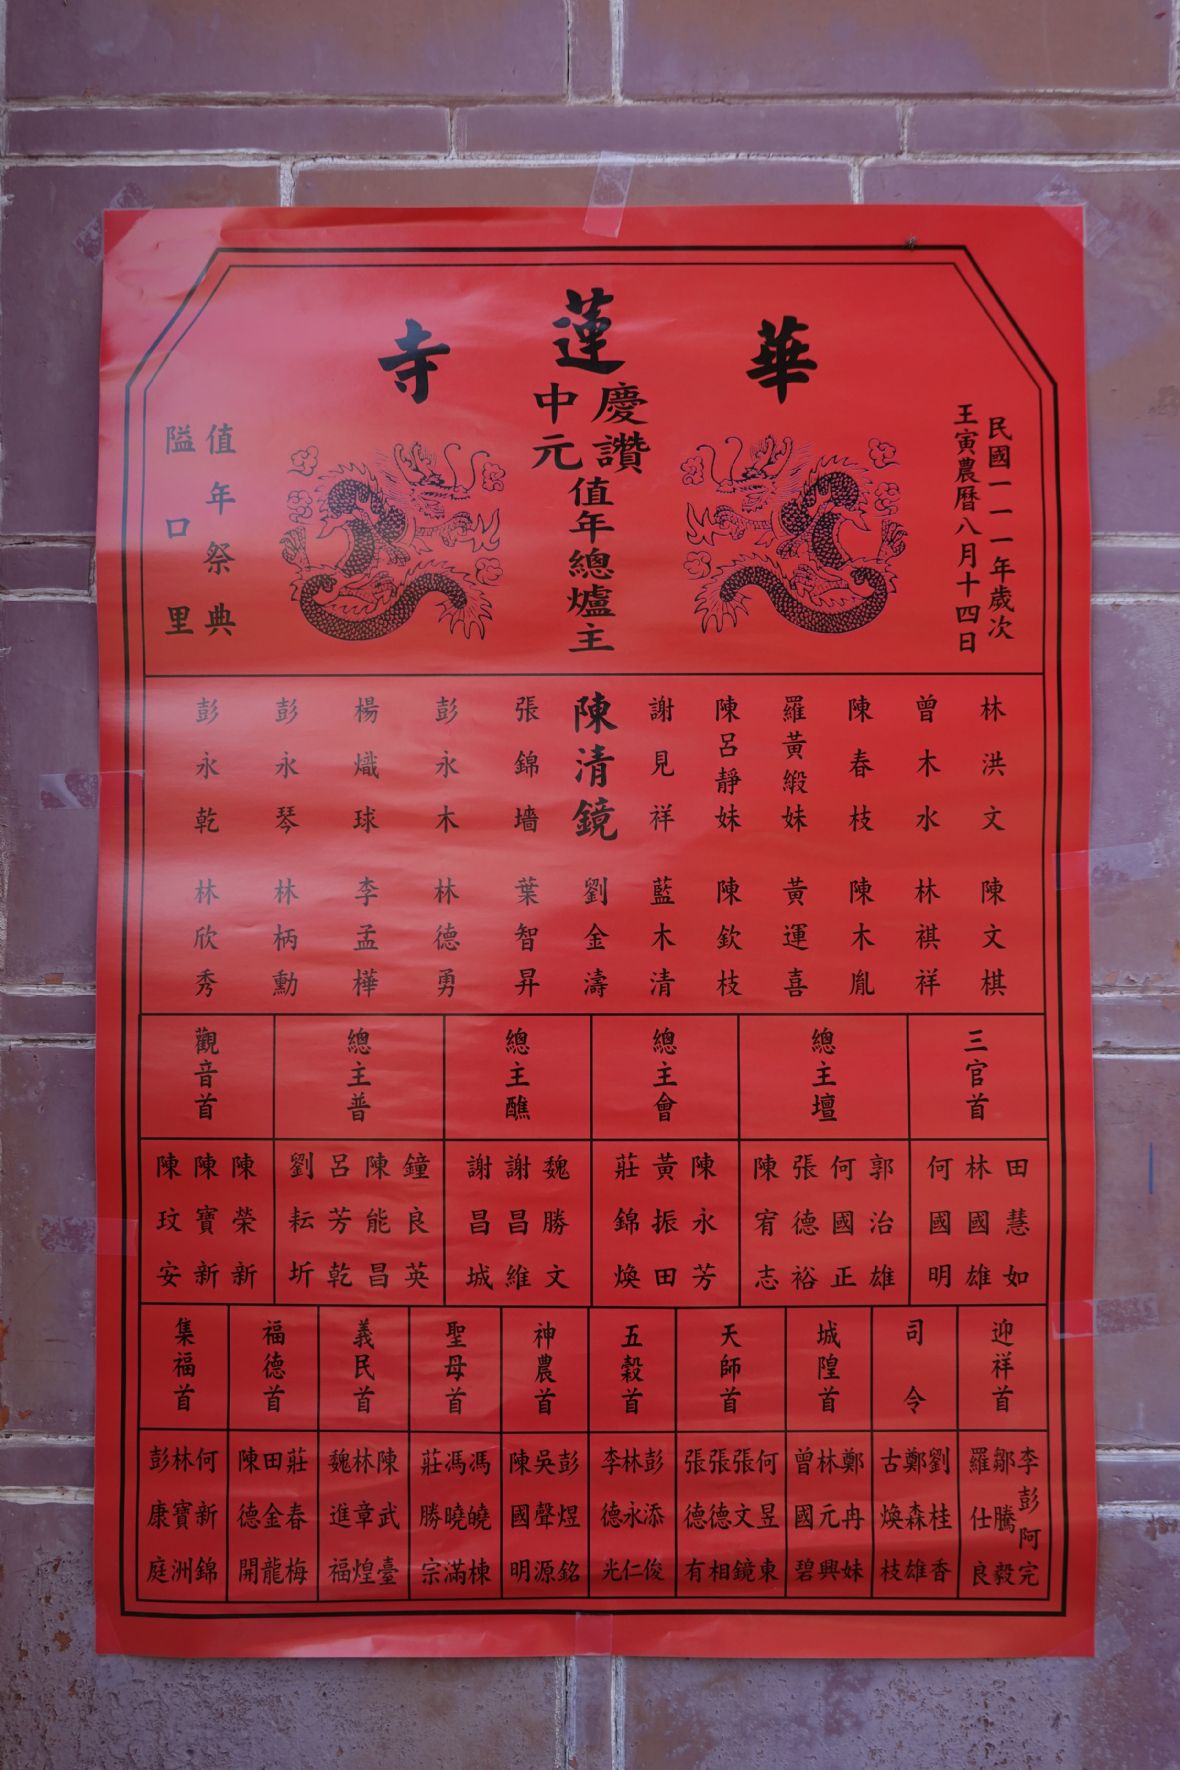 華蓮寺
慶讚中元
值年總爐主
民國一一一年歲次
王寅農曆八月十四日
值年祭典
隘口里
林洪文
曾木水
陳春枝
羅黃緞妹
陳呂靜妹
謝見祥
陳清鏡
張錦墻
彭永木
楊熾球
彭永琴
彭永乾
陳文棋
林祺祥
陳木胤
黃運喜
陳欽枝
藍木清
劉金濤
葉智昇
林德勇
李孟樺
林柄勳
林欣秀
三官首
田慧如
林國雄
何國明
總主壇
郭治雄
何國正
張德裕
陳宥志
總主會
陳永芳
黃振田
莊錦煥
總主醮
魏勝文
謝昌維
謝昌城
總主普
鐘良英
陳能昌
呂芳乾
劉耘圻
觀音首
陳榮新
陳寶新
陳玟安
迎祥首
李彭阿完
鄒騰毅
羅仕良
司令
劉桂香
鄭森雄
古煥枝
城隍首
鄭冉妹
林元興
曾國碧
天師首
何昱東
張文鏡
張德相
張德有
五穀首
彭添俊
林永仁
李德光
神農首
彭煜銘
吳聲源
陳國明
聖母首
馮皢棟
馮曉滿
莊勝宗
義民首
陳武臺
林章煌
魏進福
福德首
莊春梅
田金龍
陳德開
集福首
何新錦
林寶洲
彭康庭